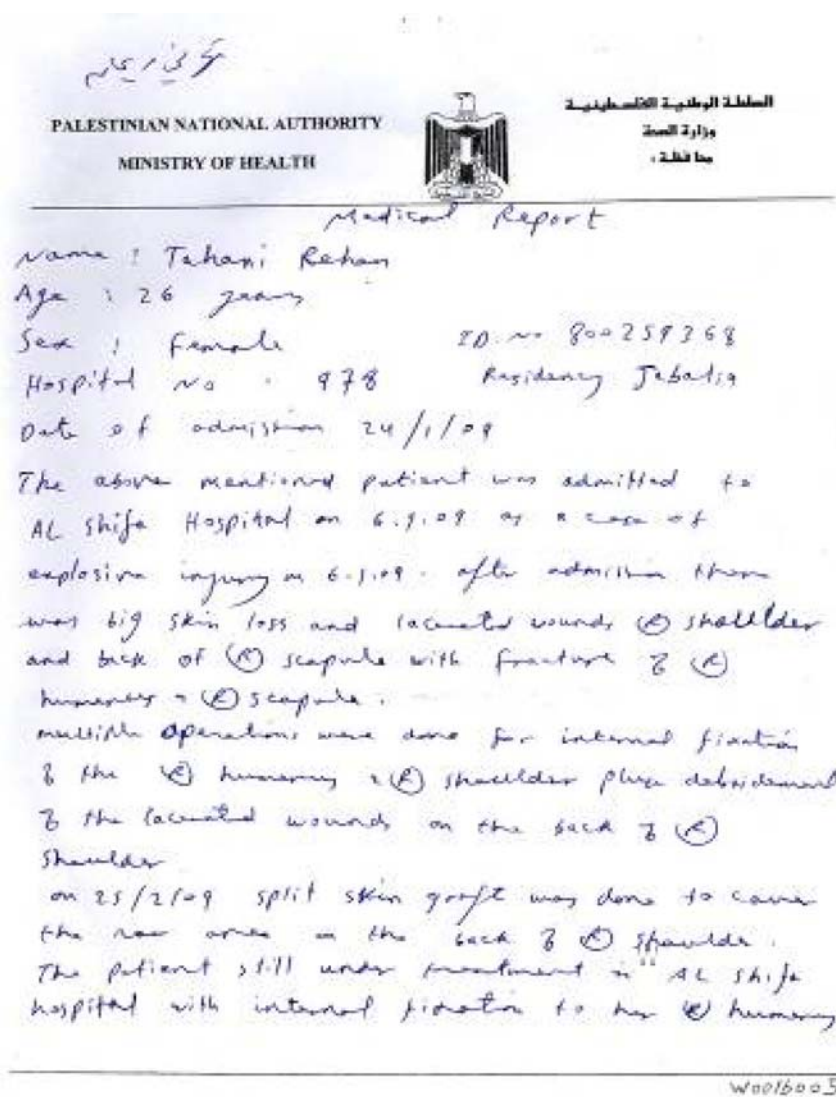 PALESTINIAN NATIONAL AUTHORITY
MINISTRY OF HEALTH
السلطة الوطنية الفلسطينية
وزارة الصحة
محافظة :
Medical Report
Name : Tahani Rehan
Age : 26 years
Sex : Female ID. No 800259368
Hospital No . 978 Residency Jabalia
Date of admission 24/1/09
The above mentioned patient was admitted to
AL Shifa Hospital on as a case of
explosive injury on after admission there
was big skin loss and lacerated wounds (R) shoulder
and back of (R) scapula with fracture of (R)
humerus + (R) scapula .
multiple operations were done for internal fixation
of the (R) humerus + (R) shoulder plus debridement
of the lacerated wounds on the back of (R)
shoulder
on 25/2/09 split skin graft was done to cover
the raw area on the back of (R) shoulder .
The patient still under treatment in AL Shifa
hospital with internal fixation to her (R) humerus
W0016003